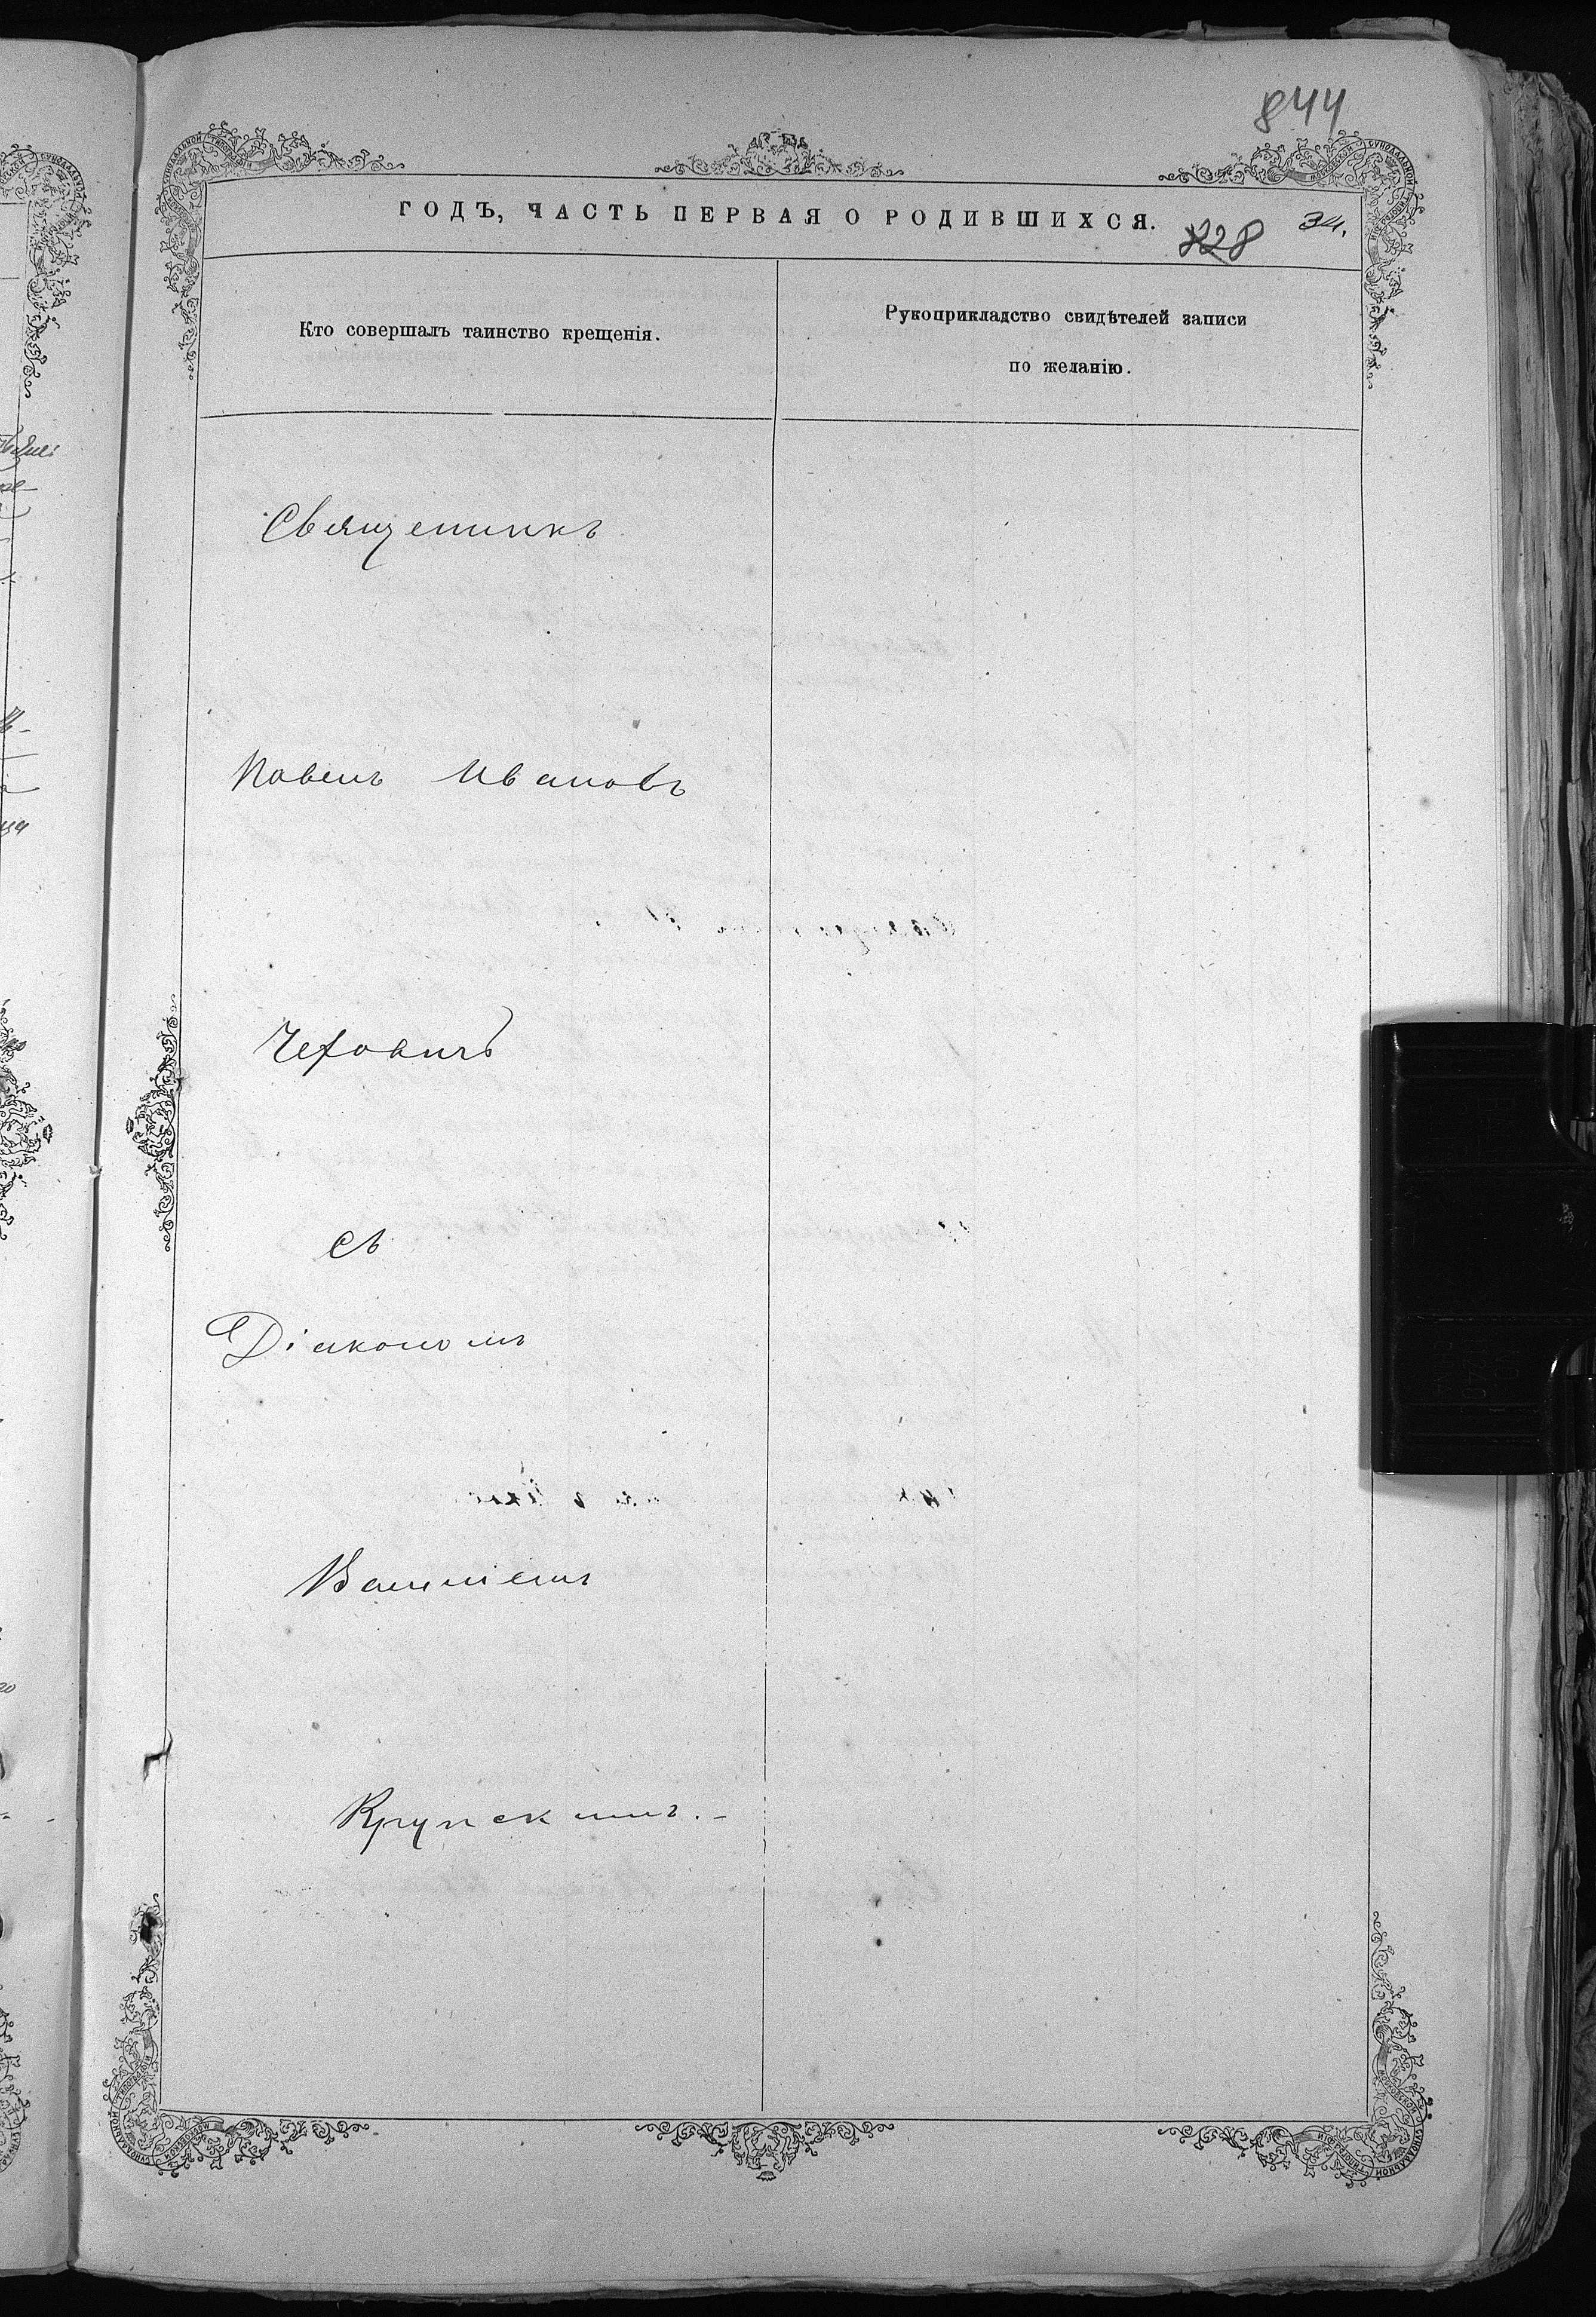 844
ГОДЪ, ЧАСТЬ ПЕРВАЯ О РОДИВШИХСЯ.
828
34.
Кто совершалъ таинство крещенія.
Рукоприкладство свидѣтелей записи
по желанію.
Священникъ
Павелъ Ивановъ
Чеховичъ
съ
Діакономъ
Василіемъ
Крупскимъ.-